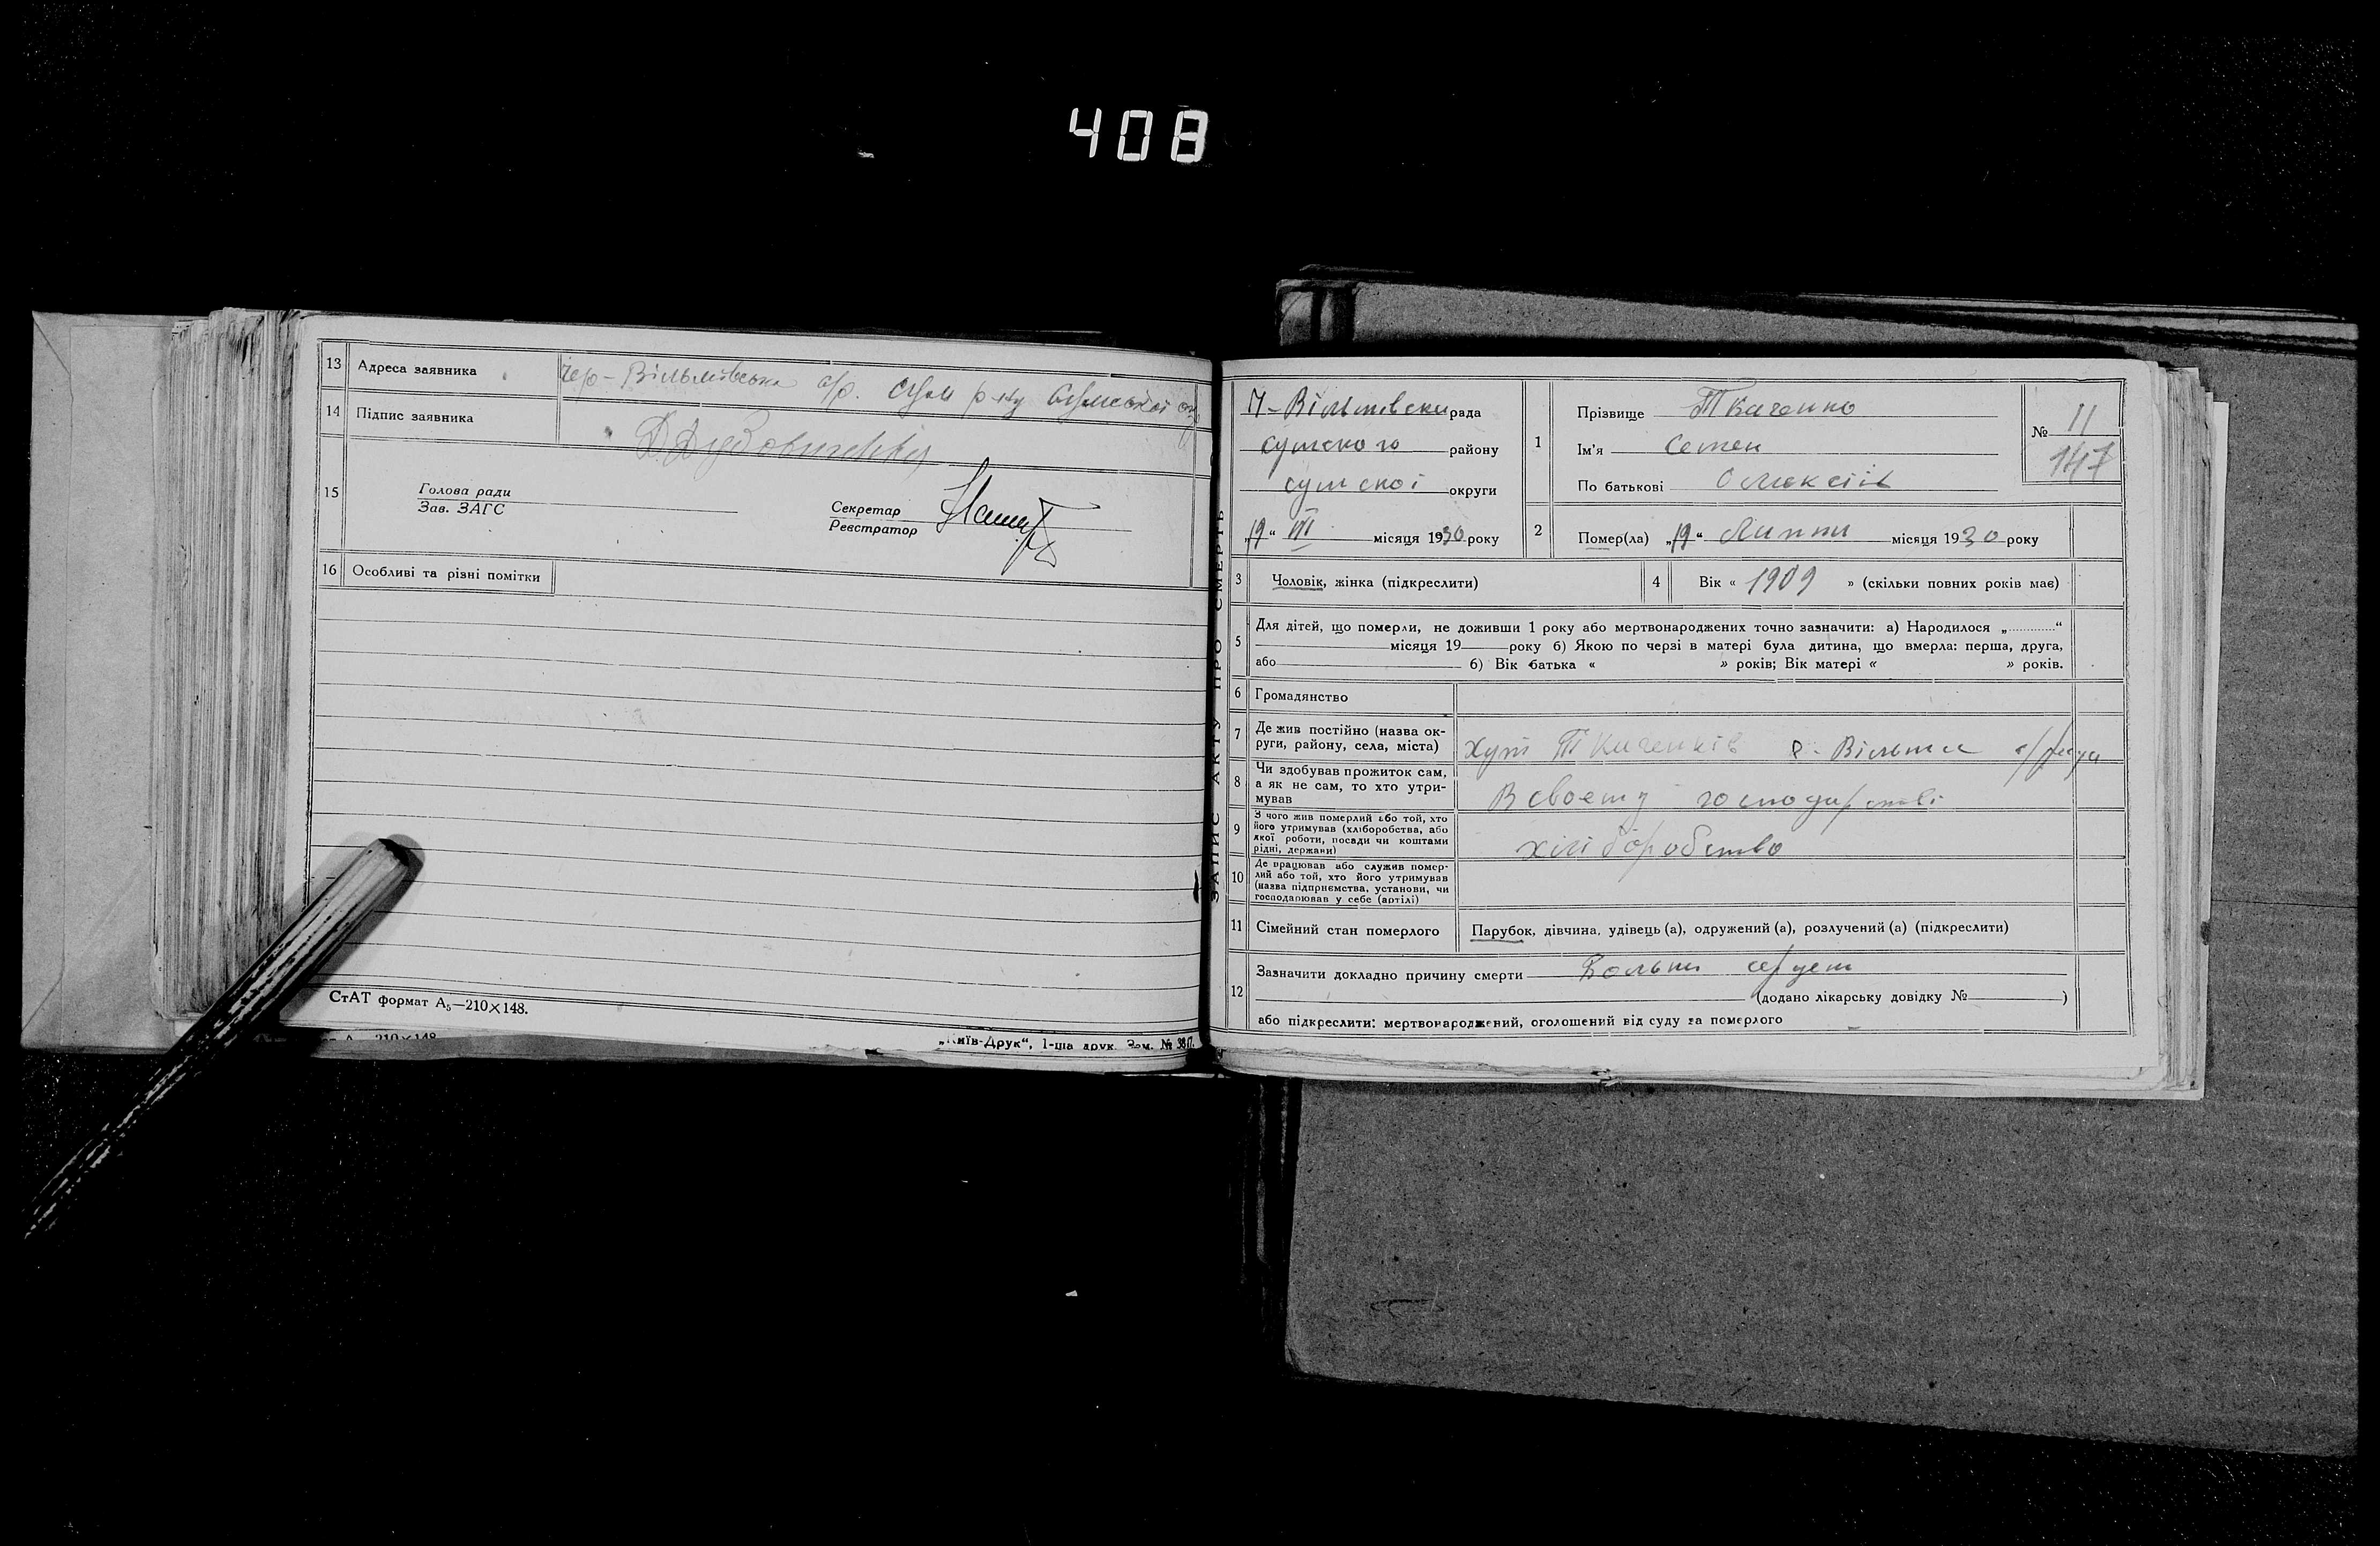 408
13 Адреса заявника Чер-Вільмівська с/р. Сум р-ну Сумської окр
14 Підпис заявника
15 Голова ради
Зав. ЗАГС
Секретар
Реєстратор
16 Особливі та різні помітки
СтАТ формат А5—210×148.
210×148
„Київ-Друк“, 1-ша друк. Зам. №
ЗАПИС АКТУ ПРО СМЕРТЬ
рада
сумского району
сумскоі округи
„19“ III місяця 1930 року
1 Прізвище Ткаченко
Ім'я Семен
По батькові Олексіїв
№ 11
147
2 Помер(ла) „19“ місяця 1930 року
3 Чоловік, жінка (підкреслити)
4 Вік « 1909 » (скільки повних років має)
5 Для дітей, що померли, не доживши 1 року або мертвонароджених точно зазначити: а) Народилося „............“
місяця 19 року б) Якою по черзі в матері була дитина, що вмерла: перша, друга,
або б) Вік батька « » років; Вік матері « » років.
6 Громадянство
7 Де жив постійно (назва округи, району, села, міста) Хут Ткаченків
8 Чи здобував прожиток сам,
а як не сам, то хто утримував
В своему господарстві
9 З чого жив померлий або той, хто
його утримував (хліборобства, або
якої роботи, посади чи коштами
рідні, держави)
хліборобство
10 Де працював або служив померлий або той, хто його утримував
(назва підприємства, установи, чи
господарював у себе (артілі)
11 Сімейний стан померлого Парубок, дівчина, удівець (а), одружений (а), розлучений (а) (підкреслити)
12 Зазначити докладно причину смерти
(додано лікарську довідку № )
або підкреслити: мертвонароджений, оголошений від суду за померлого